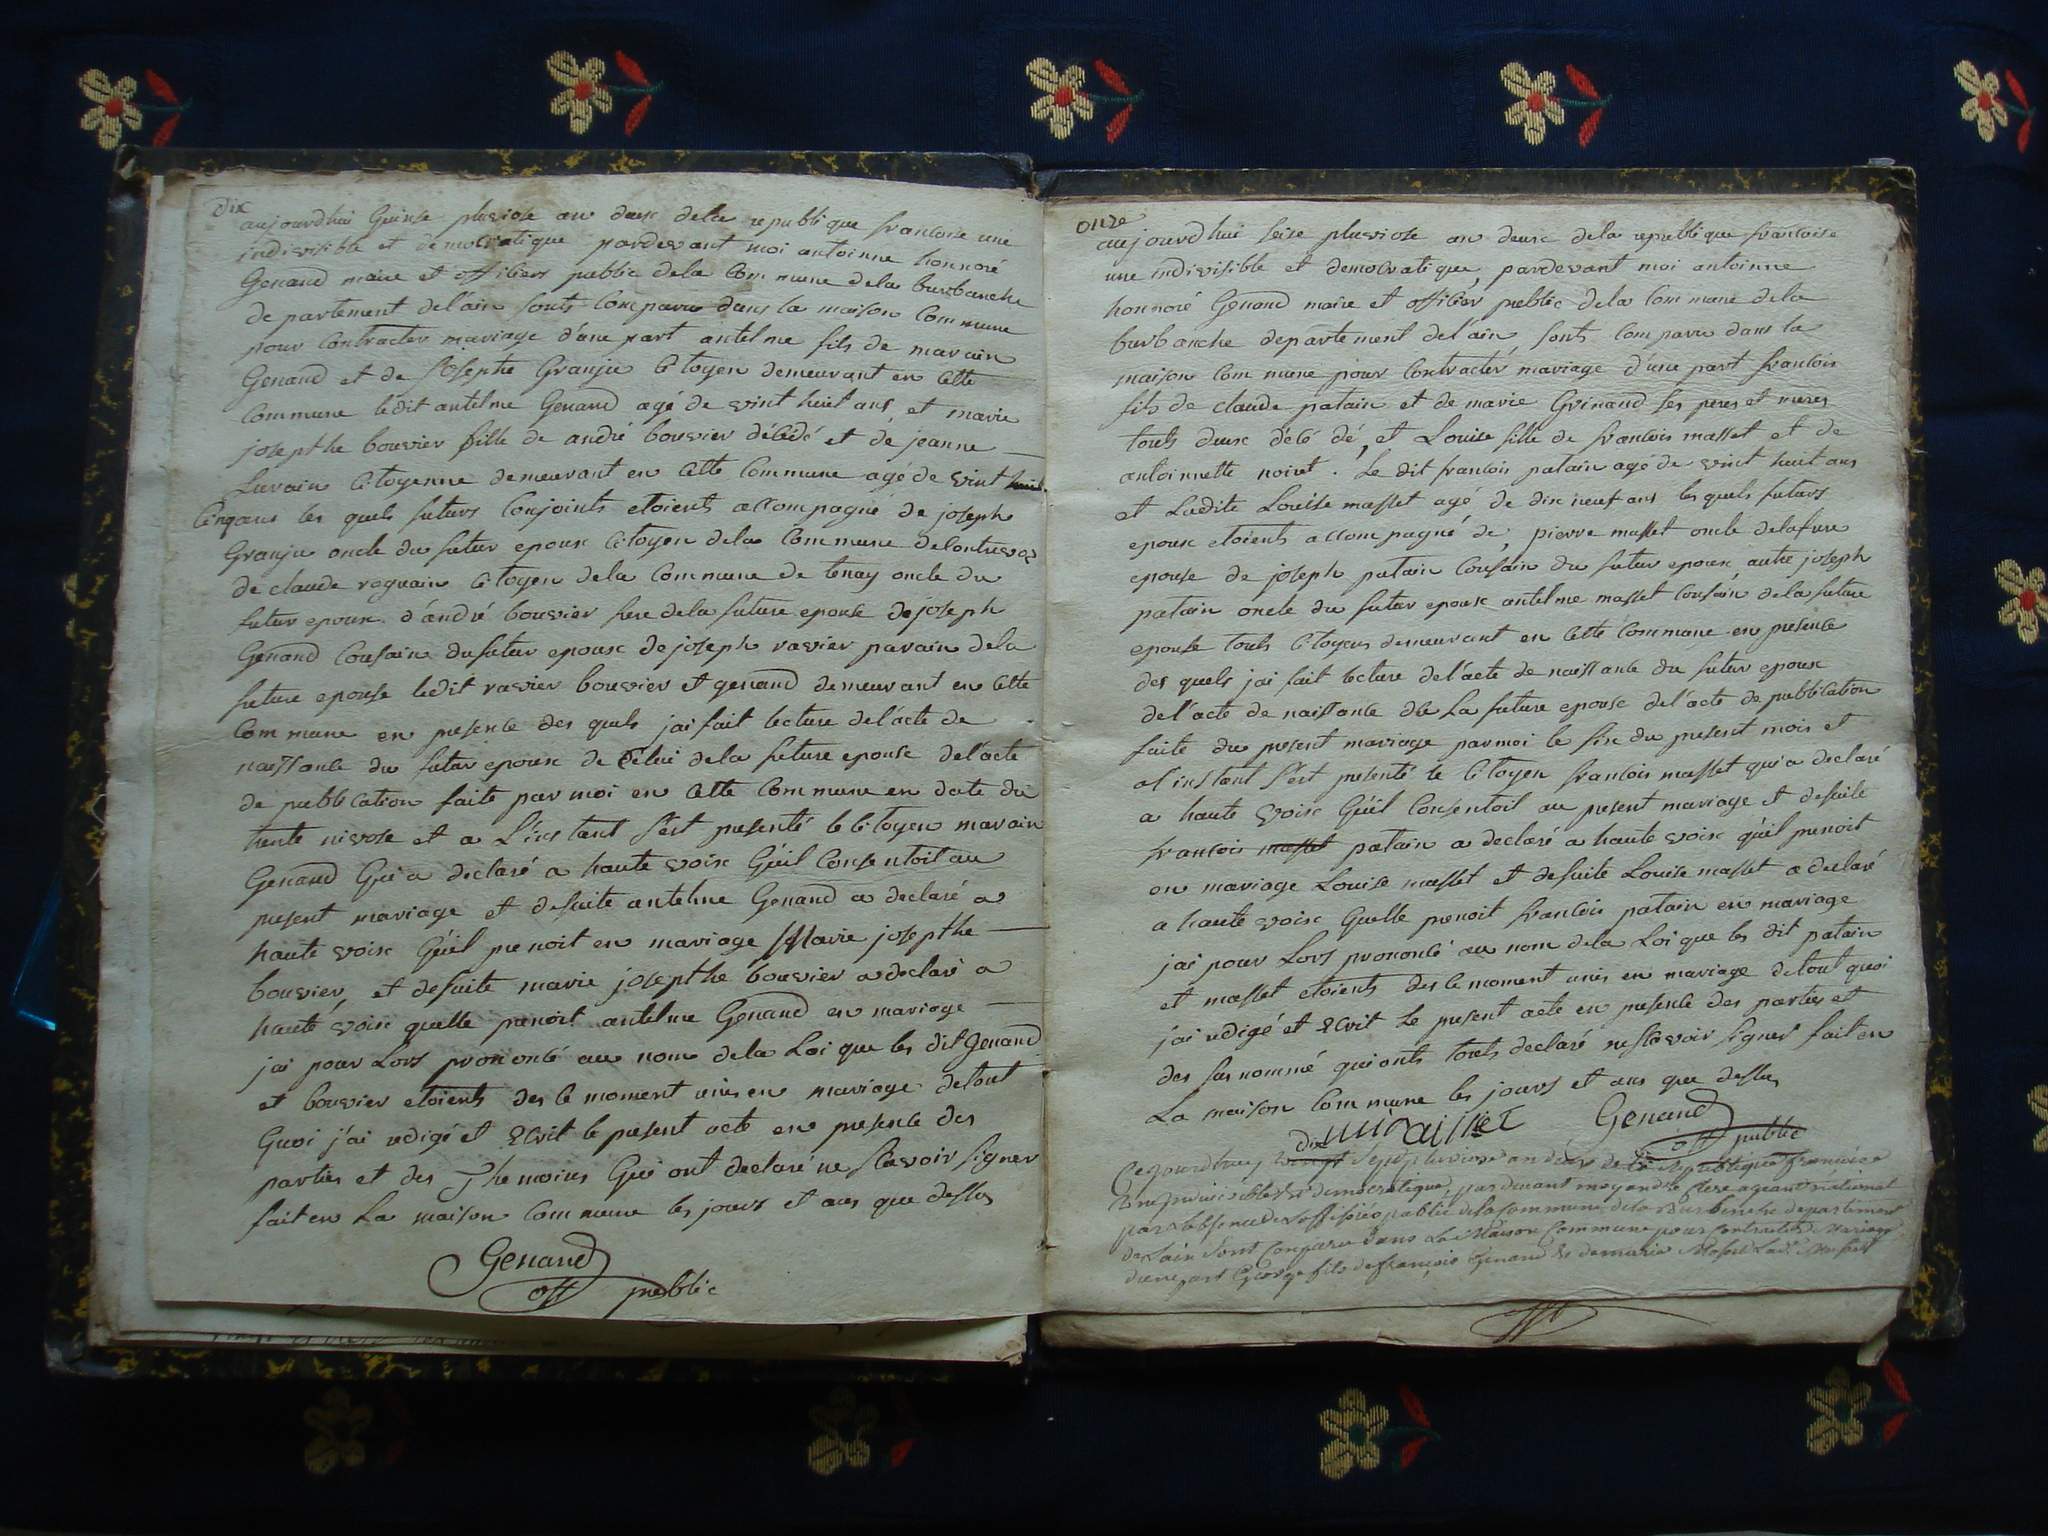 dix
aujourdhui Quinse pluviose an deux dela republique francoise une
indivisible et democratique pardevant moi antoinne honnoré
Genand maire et officiers public dela Commune dela burbanche
departement del'ain sonts comparu dans la maison Commune
pour contracter mariage d'une part antelme fils de marain
Genand et de Josephe Granju Citoyen demeurant en cette
Commune ledit antelme Genand agé de vint huit ans et marie
josepthe bouvier fille de andré bouvier décédé et de jeanne
Luvain Citoyenne demeurant en cette Commune agé de vint
Cinqans les quels futurs Conjoints etoients accompagné de joseph
Granju oncle du futur epoux Citoyen dela Commune
de claude roguain Citoyen dela Commune de tenay oncle du
futur epoux d'andré bouvier frere dela future epouse de joseph
Genand Cousain dufutur epoux de joseph ravier parain dela
future epouse ledit ravier bouvier et genand demeurant en cette
Commune en presence des quels jai fait lecture del'acte de
naissance du futur epoux de Celui dela future epouse del'acte
de publication faite par moi en cette Commune en date du
trente nivose et a L'instant s'est presenté le Citoyen marain
Genand Qui a declaré a haute voix Qu'il Consentoit au
present mariage et desuite antelme Genand a declaré a
haute voix Qu'il prenoit en mariage Marie josepthe
bouvier, et desuite marie josepthe bouvier a declaré a
haute voix quelle prenoit antelme Genand en mariage
jai pour Lors prononcé au nom dela Loi que les dit Genand
et bouvier etoients des le moment unis en mariage detout
Quoi j'ai redigé et Ecrit le present acte en presence des
parties et des Themoins Qui ont declaré ne scavoir signer
fait en La maison Commune les jours et ans que dessus
Genand
off public
onze
aujourdhui seise pluviose an deux dela republique francoise
une indivisible et democratique, pardevant moi antoinne
honnoré Genand maire et officier public dela Commune dela
burbanche departement del'ain, sonts comparu dans la
maison Commune pour Contracter mariage d'une part francois
fils de claude patain et de marie Guinand ses peres et meres
touts deux décédé, et Louise fille de francois masset et de
antoinnette noiret. Le dit francois patain agé de vint huit ans
et Ladite Louise masset agé de dix neuf ans les quels futurs
epoux etoients accompagné de, pierre masset oncle delafure
epouse de joseph patain Cousain du futur epoux autre joseph
patain oncle du futur epoux antelme masset Cousain dela future
epouse touts Citoyens demeurant en cette Commune en presence
des quels jai fait lecture del'acte de naissance du futur epoux
del'acte de naissance de La future epouse del'acte de publication
faite du present mariage par moi le six du present mois et
a l'instant s'est presenté le Citoyen francois masset qui a declaré
a haute voix Qu'il Consentoit au present mariage et desuite
francois masset patain a declaré a haute voix qu'il prenoit
en mariage Louise masset et desuite Louise masset a declaré
a haute voix Quelle prenoit francois patain en mariage
jai pour Lors prononcé au nom dela Loi que les dit patain
et masset etoients des le moment unis en mariage detout quoi
jai redigé et Ecrit Le present acte en presence des parties et
des sus nommé qui onts touts declaré ne scavoir signer fait en
La maison Commune les jours et ans que dessus
Genand
off public
Cejourdhuy vingt sept pluviose an deux de la Republique francoise
une indivisible et democratique, par devant moy andré agent national
par l'absence de l'officier public de la Commune dela Burbanche departement
de Lain sont Comparu dans La Maison Commune pour Contracter Mariage
dune part George fils de francois Genand et de marie